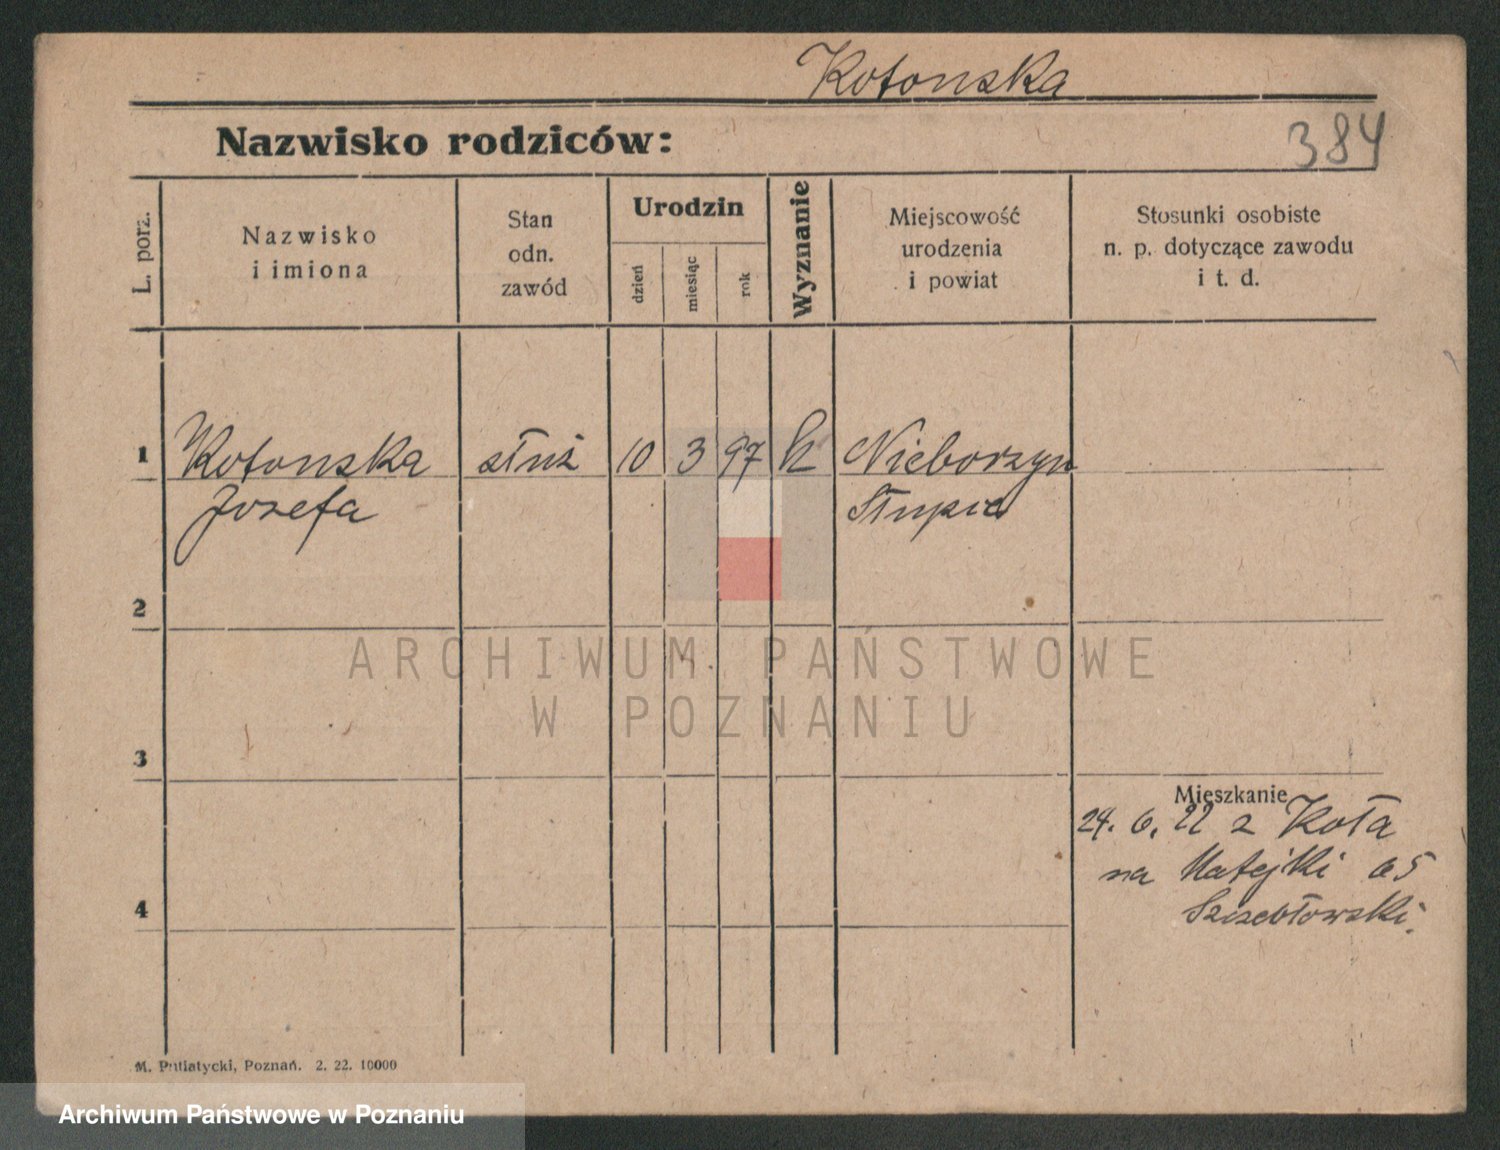 Kotonska
Nazwisko rodziców:
384
L. porz.
Nazwisko
i imiona
Stan
odn.
zawód
Urodzin
dzień
miesiąc
rok
Wyznanie
Miejscowość
urodzenia
i powiat
Stosunki osobiste
n. p. dotyczące zawodu
i t. d.
1 Kotonska służ 10 3 97 k Nieborzyn
Jozefa Słupca
2
3
4
Mieszkanie
24. 6. 22 z Koła
na Matejki 65
M. Putiatycki, Poznań. 2. 22. 10000
ARCHIWUM PAŃSTWOWE
W POZNANIU
Archiwum Państwowe w Poznaniu